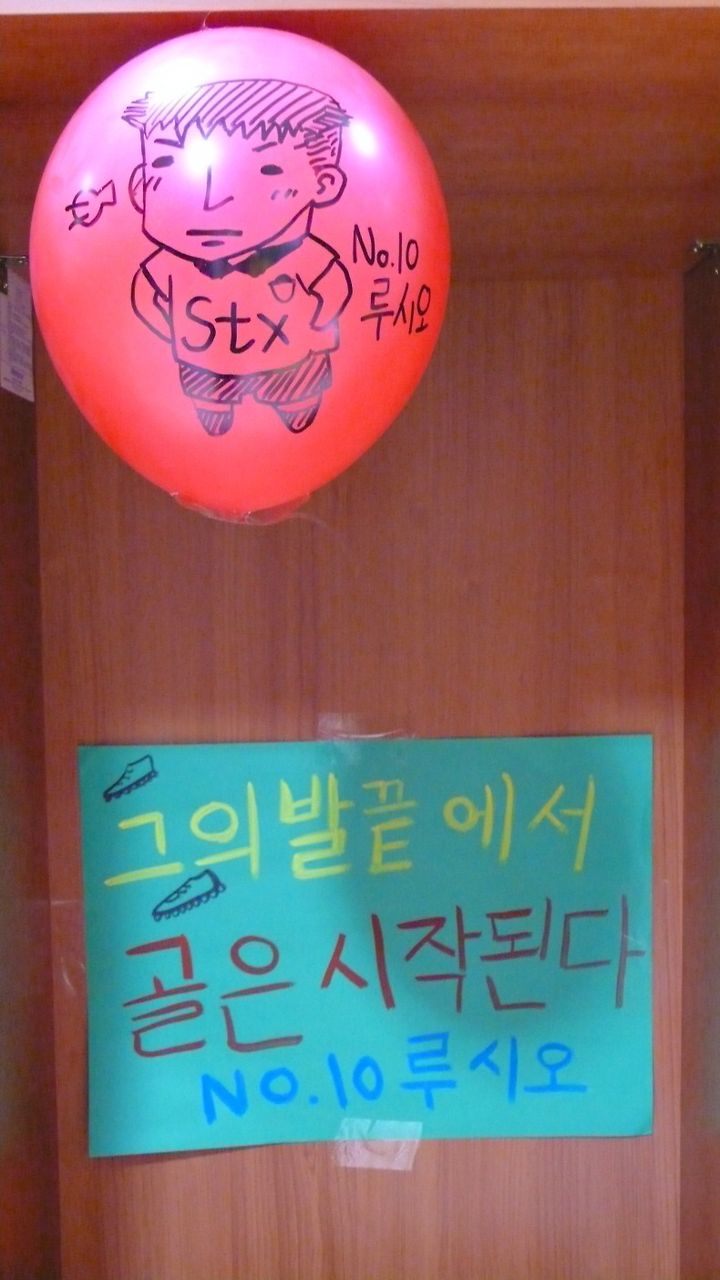 Stx
No.10
루시오
그의 발끝에서
골은 시작된다
NO.10 루시오